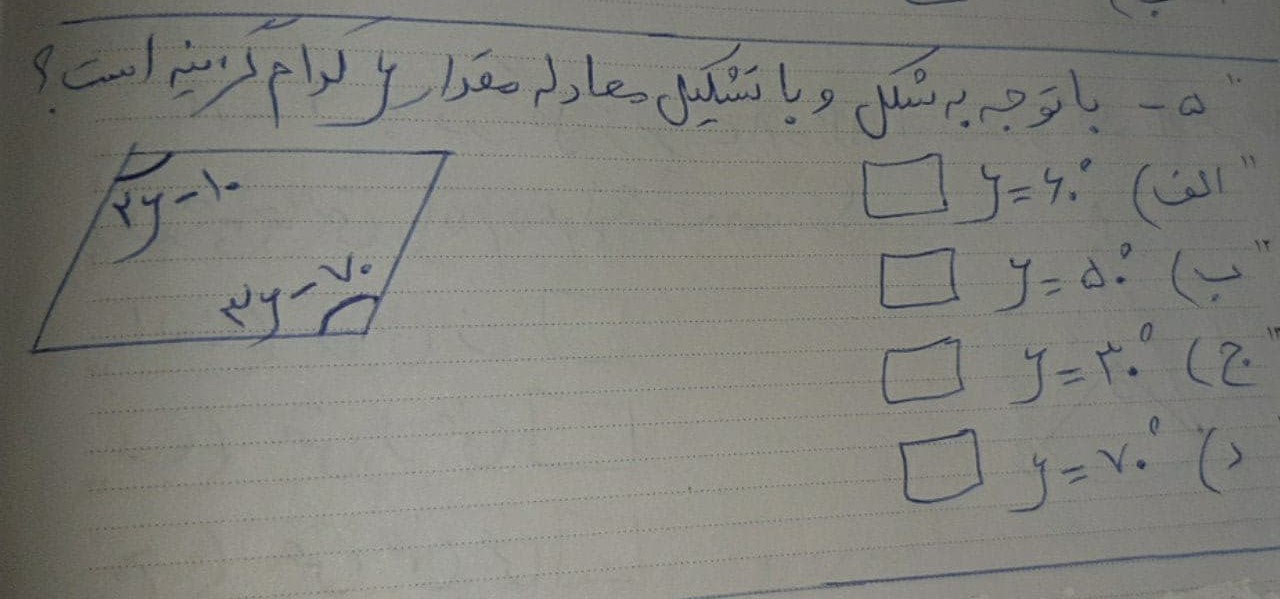 ۵- با توجه به شکل و با تشکیل معادله مقدار y کدام گزینه است؟
الف) y = ۶۰°
ب) y = ۵۰°
ج) y = ۳۰°
د) y = ۷۰°
۲y - ۱۰
۳y - ۷۰